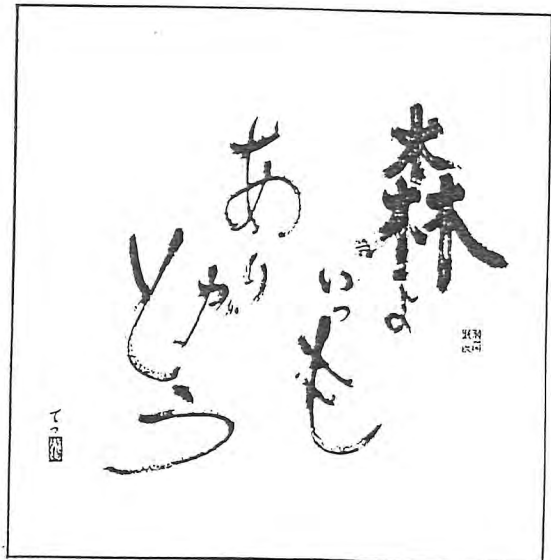 森よ
いつも
ありが
とう
てつ